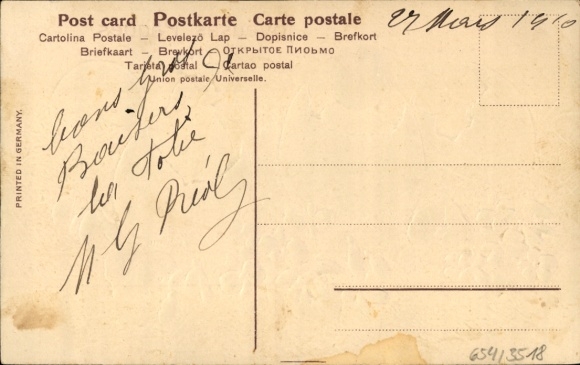 Post card Postkarte Carte postale
Cartolina Postale – Levelező Lap – Dopisnice – Brefkort
Briefkaart – Brevkort – ОТКРЫТОЕ ПИСЬМО
Tarjeta postal – Cartao postal
Union postale Universelle.
27 Mars 1910
PRINTED IN GERMANY.
bons gros
Baisers
la
654/3518